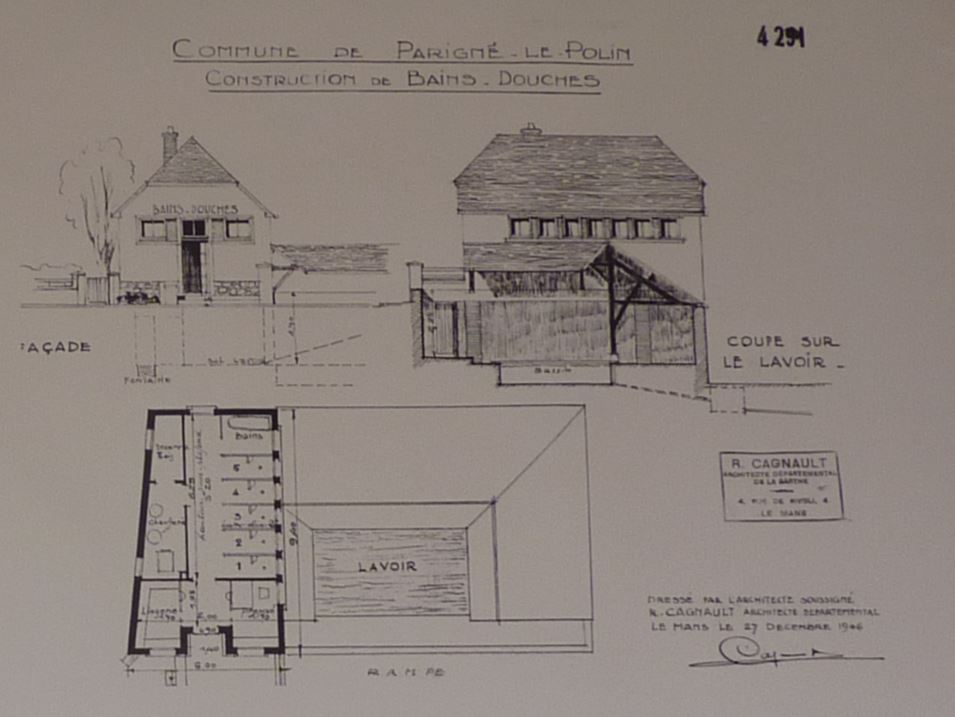 4 291
COMMUNE DE PARIGNÉ-LE-POLIN
CONSTRUCTION DE BAINS-DOUCHES
BAINS-DOUCHES
AÇADE
FONTAINE
BASSIN
COUPE SUR
LE LAVOIR
BAINS
5
4
3
2
1
LAVOIR
9,40
2,00
0,90
1,40
6,00
RAMPE
R. CAGNAULT
ARCHITECTE DÉPARTEMENTAL
DE LA SARTHE
4, RUE DE RIVOLI, 4
LE MANS
DRESSÉ PAR L'ARCHITECTE SOUSSIGNÉ
R. CAGNAULT ARCHITECTE DÉPARTEMENTAL
LE MANS LE 27 DÉCEMBRE 1946